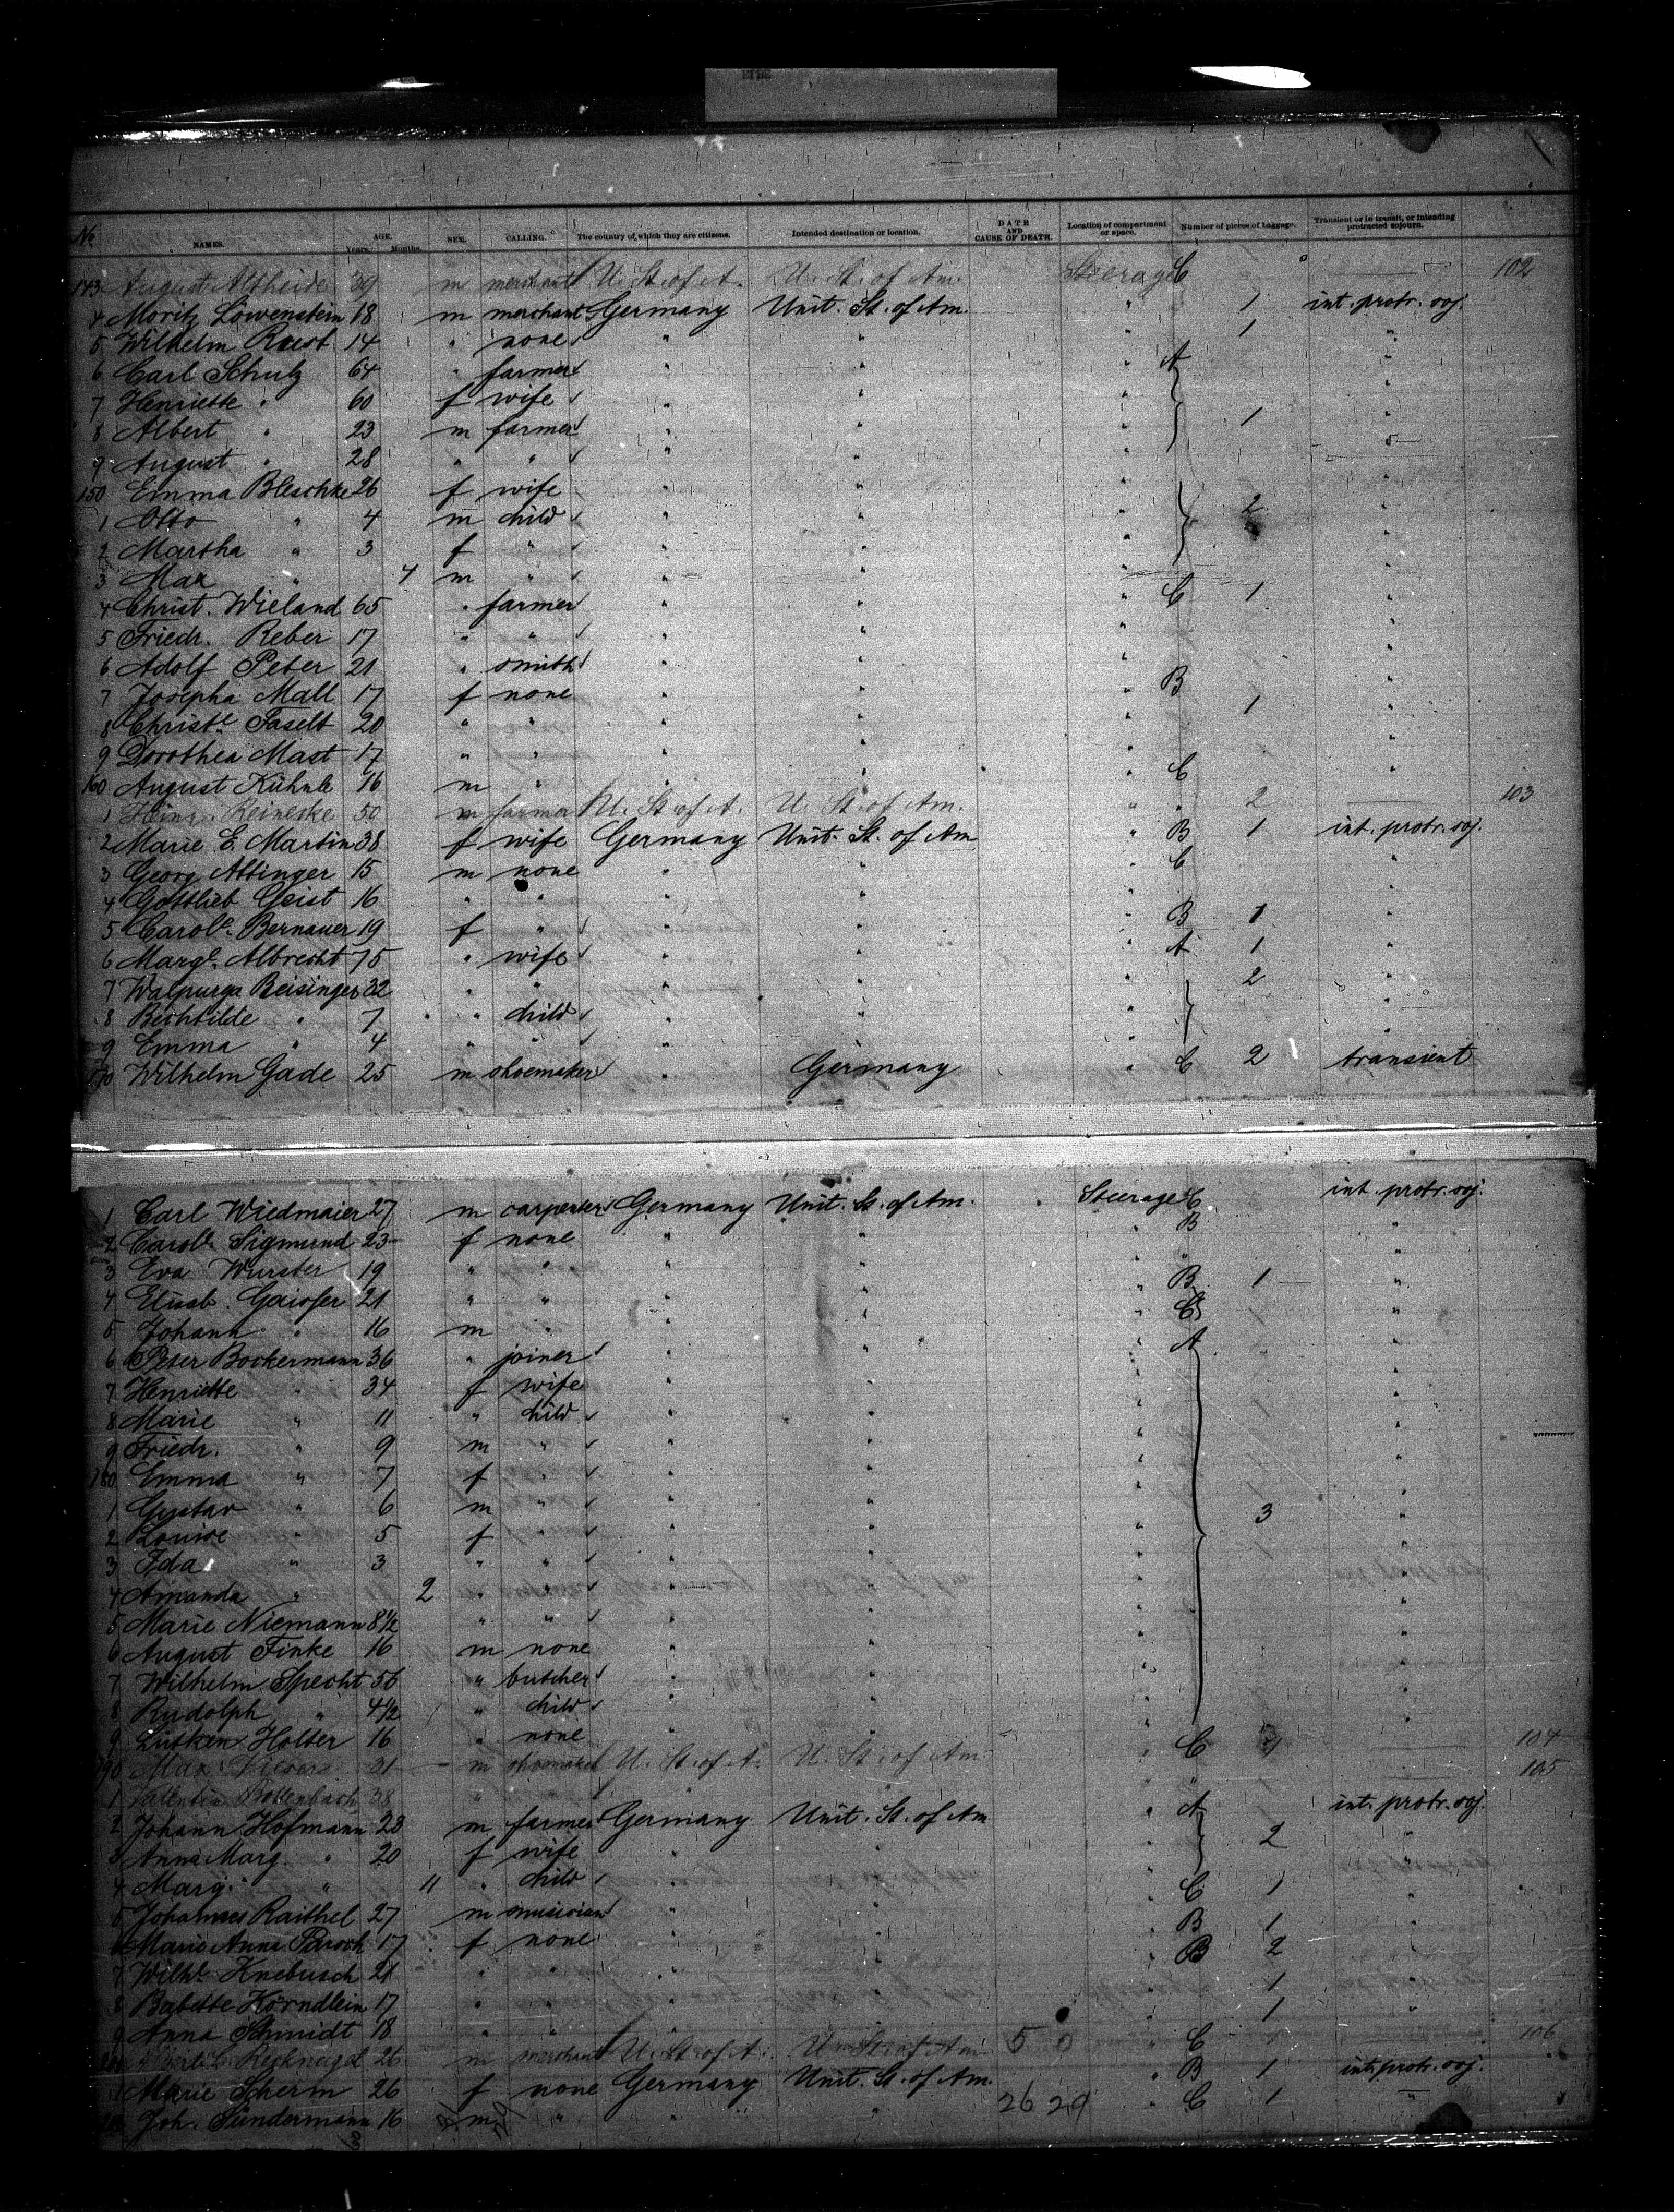 No NAMES. AGE. Years. Months. SEX. CALLING. The country of, which they are citizens. Intended destination or location. DATE AND CAUSE OF DEATH. Location of compartment or space. Number of pieces of baggage. Transient or in transit, or intending protracted sojourn.
143 August Altheide 39 m merchant U. St. of A. U. St. of Am. Steerage C 102
4 Moritz Löwenstein 18 m merchant Germany Unit. St. of Am. " 1 int. protr. soj.
5 Wilhelm Roest 14 " none " " " 1 "
6 Carl Schulz 64 " farmer " " " A "
7 Henriette " 60 f wife " " " "
8 Albert " 23 m farmer " " " 1 "
9 August " 28 " " " " " "
150 Emma Bleschke 26 f wife " " " "
1 Otto " 4 m child " " " 2 "
2 Martha " 3 f " " " " "
3 Max " 4 m " " " " "
4 Christ. Wieland 65 " farmer " " " C 1 "
5 Friedr. Reber 17 " " " " " "
6 Adolf Peter 21 " smith " " " "
7 Josepha Mall 17 f none " " " B "
8 Christe. Faselt 20 " " " " " 1 "
9 Dorothea Mast 17 " " " " " "
160 August Kühnle 16 m " " " " C "
1 Heinr. Reinecke 50 m farmer U. St. of A. U. St. of Am. " " 2 103
2 Marie E. Martin 38 f wife Germany Unit. St. of Am " B 1 int. protr. soj.
3 Georg Attinger 15 m none " " " C "
4 Gottlieb Geist 16 " " " " " "
5 Carole. Bernauer 19 f " " " " B 1 "
6 Marge. Albrecht 75 " wife " " " A 1 "
7 Walpurga Beisinger 32 " " " " " 2 "
8 Bechtilde " 7 " child " " " "
9 Emma " 4 " " " " " "
170 Wilhelm Gade 25 m shoemaker " Germany " C 2 transient
1 Carl Wiedmaier 27 m carpenter Germany Unit. St. of Am. Steerage C int. protr. soj.
2 Carole. Sigmund 23 f none " " " B "
3 Eva Wurster 19 " " " " " " "
4 Elisab. Gaiser 21 " " " " " B 1 "
5 Johann " 16 m " " " " C "
6 Peter Bockermann 36 " joiner " " " A "
7 Henriette " 34 f wife " " " "
8 Marie " 11 " child " " " "
9 Friedr. " 9 m " " " " "
180 Emma " 7 f " " " " "
1 Gustav " 6 m " " " " 3 "
2 Louise " 5 f " " " " "
3 Ida " 3 " " " " " "
4 Amanda " 2 " " " " " "
5 Marie Niemann 8½ " " " " " "
6 August Finke 16 m none " " " "
7 Wilhelm Specht 56 " butcher " " " "
8 Rudolph " 4½ " child " " " "
9 Lütken Holter 16 " none " " " "
190 Max 31 m shoemaker U. St. of A. U. St. of Am " C 1 104
1 Valentin Bottenbach 38 " " " " " " 105
2 Johann Hofmann 28 m farmer Germany Unit. St. of Am " A int. protr. soj.
3 Anna Marg. " 20 f wife " " " 2 "
4 Marg. " 11 " child " " " "
5 Johannes Raithel 27 m musician " " " C 1 "
6 Marie Anna Parsch 17 f none " " " B 1 "
7 Wilhe. Knebusch 21 " " " " " B 2 "
8 Babette Körndlein 17 " " " " " 1 "
9 Anna Schmidt 18 " " " " " 1 "
200 Recknagel 26 m merchant U. St. of A. U. St. of Am 5 0 " C 106
1 Marie Scherm 26 f none Germany Unit. St. of Am. " B 1 int. protr. soj.
Joh. Sündermann 16 m " " " 26 29 " C 1 "